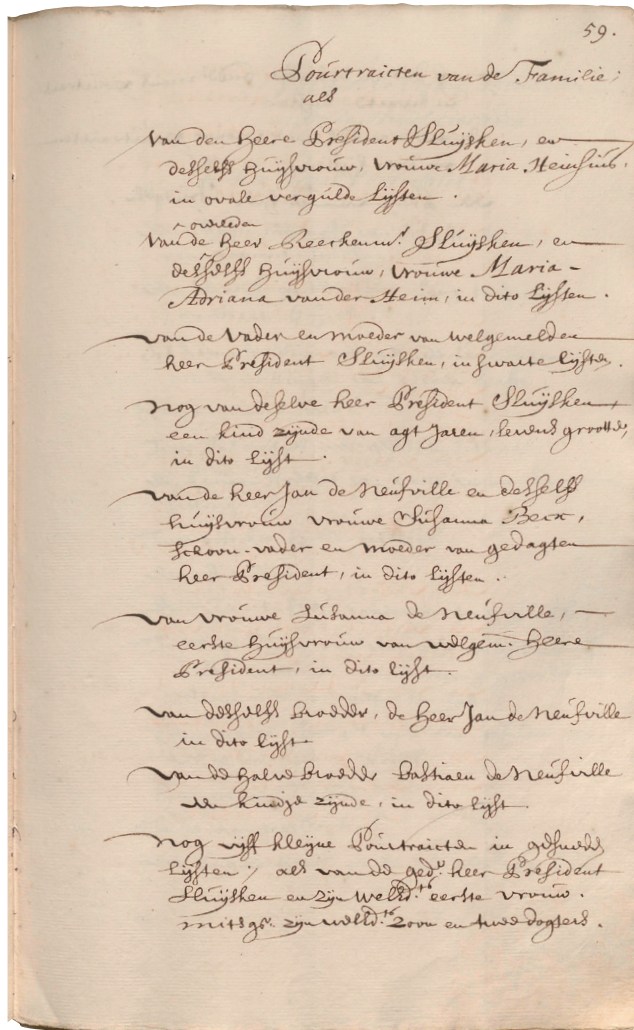 59.
Pourtraicten van de Familie;
als
van den heere President Sluijsken, en
desselfs huijsvrouw, vrouwe Maria Heinsius,
in ovale vergulde lijsten.
overleden
van de heer Reeckenmr. Sluijsken, en
desselfs huijsvrouw, vrouwe Maria-
Adriana vander Heim, in dito lijsten.
van de vader en moeder van welgemelden
heer President Sluijsken, in swarte lijsten.
nog van deselve heer President Sluijsken
een kind zijnde van agt Jaren, levens groote,
in dito lijst.
van de heer Jan de Neufville en desselfs
huijsvrouw vrouwe Susanna Beck,
schoon-vader en moeder van gedagten
heer President, in dito lijsten.
van vrouwe Susanna de Neufville,
eerste huijsvrouw van welgem. heere
President, in dito lijst.
van desselfs broeder, de heer Jan de Neufville
in dito lijst
van de halve broeder bastiaen de Neufville
een kindje zijnde, in dito lijst
nog vijff kleijne Pourtraicten in gesneede
lijsten; als van de ged. heer President
Sluijsken en zijn welEd.ts eerste vrouw.
mitsgs. zijn welEd.ts zoon en twee dogters.